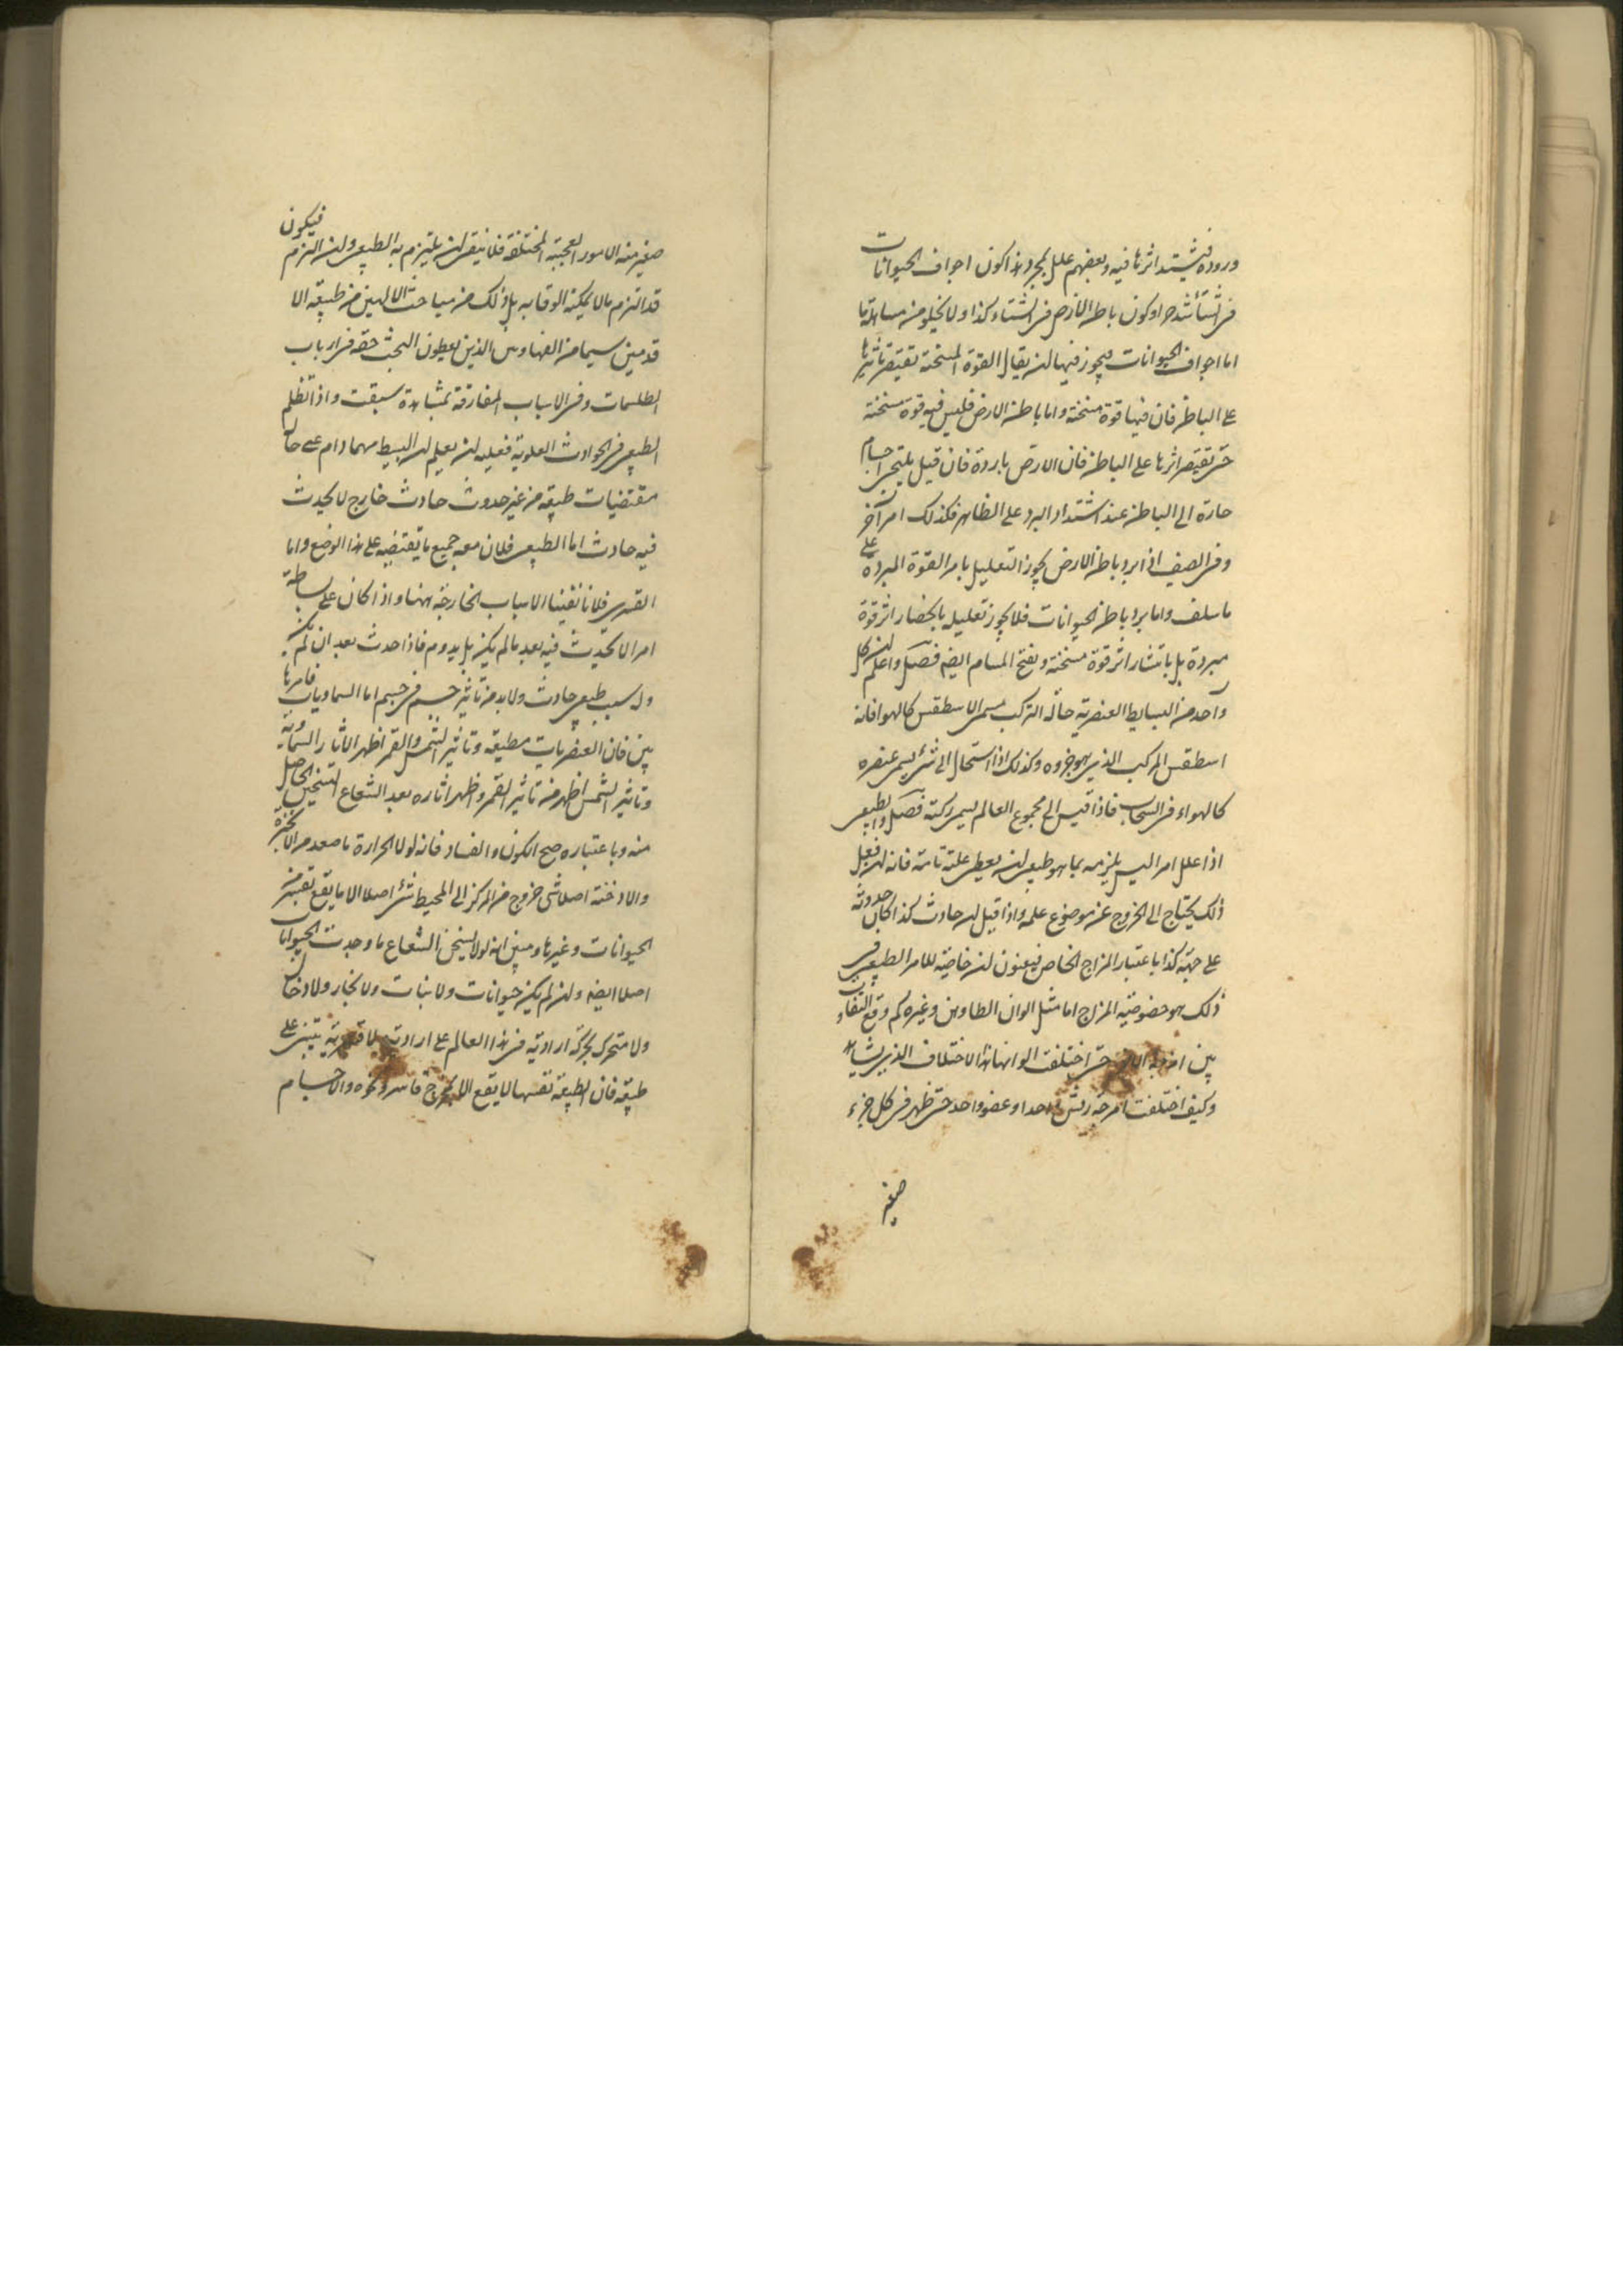 وروده فيشتد اثرها فيه وبعضهم علل بمجرد هذا كون اجواف الحيوانات
فى الشتاء اشد حرا وكون باطن الارض فى الشتاء كذا ولا يخلو من مساهلة ما
اما اجواف الحيوانات فيجوز فيها ان يقال القوة المسخنة تقتصر تأثيرها
على الباطن فان فيها قوة مسخنة واما باطن الارض فليس فيه قوة مسخنة
حتى تقتصر اثرها على الباطن فان الارض باردة فان قيل يلتجى اجسام
حارة الى الباطن عند اشتداد البرد على الظاهر فكذلك امر آخر
وفى الصيف اذا برد باطن الارض يجوز التعليل بامر القوة المبردة على
ما سلف واما برد باطن الحيوانات فلا يجوز تعليله بانحصار اثر قوة
مبردة بل بانتشار اثر قوة مسخنة وبفتح المسام ايضا فصل واعلم ان كل
واحد من البسايط العنصرية حالة التركب يسمى الاسطقس كالهوا فانه
اسطقس المركب الذى هو جزوه وكذلك اذا استحال الى شئ يسمى عنصره
كالهواء فى السحاب فاذا قيس الى مجموع العالم يسمى ركنه فصل والطبيعى
اذا علل امرا ليس يلزمه بما هو طبيعى ان يعطى علته تامة فانه ان فعل
ذلك يحتاج الى الخروج عن موضوع علمه واذا قيل ان حادث كذا كان حدوثه
على جهة كذا باعتبار المزاج الخاص فيعنون ان خاصية للامر الطبيعى فى
ذلك هو خصوصية المزاج اما مثل الوان الطاوس وغيره كم وقع التفاوت
بين امزجة حتى اختلفت الوانها هذا الاختلاف الذى يشاهد
وكيف اختلفت امزجة ريش واحد او عضو واحد حتى ظهر فى كل جزء
صغير
صغير منه الامور العجيبة المختلفة فلا ينبغى ان يلتزم به الطبيعى وان التزم فيكون
قد التزم ما لا يمكنه الوفا به بل ذلك من مباحث الالهيين من طبيعة الا
قدمين سيما من الفهاوس الذين يعطون البحث حقه فى ارباب
الطلسمات وفى الاسباب المفارقة بمشاهدة سبقت واذا تكلم
الطبيعى فى الحوادث العلوية فعليه ان يعلم ان البسيط مهما دام على حال
مقتضيات طبيعة من غير حدوث حادث خارج لا يحدث
فيه حادث اما الطبيعى فلان معه جميع ما يقتضيه على هذا الوضع واما
القسرى فلانا نفينا الاسباب الخارجة ههنا واذا كان على بساطة
امر لا يحدث فيه بعد ما لم يكن بل يدوم فاذا حدث بعد ان لم يكن
وله سبب طبيعى حادث ولا بد من تأثير جسم فى جسم اما السماويات فامرها
بين فان العنصريات مطيعة وتأثير الشمس والقمر اظهر الاثار السماوية
وتأثير الشمس اظهر من تأثير القمر واظهر اثاره بعد الشعاع التسخين الحاصل
منه وباعتباره صح الكون والفساد فانه لولا الحرارة ما صعد من الابخرة
والادخنة اصلا شى خروج من المركز الى المحيط شئ اصلا الا ما يقع بقسر من
الحيوانات وغيرها ومبين انه لولا تسخن الشعاع ما وجدت الحيوانات
اصلا ايضا وان لم يكن حيوانات ولا نبات ولا بخار ولا دخان
ولا متحرك بحركة ارادية فى هذا العالم على ارادية تبتنى على
طبيعة فان الطبيعة نفسها لا يقع الا بخروج قاسر ونحوه والاجسام